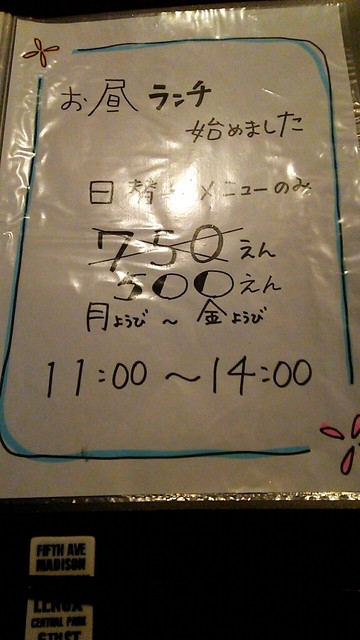 お昼ランチ
始めました
日替りメニューのみ
750えん
500えん
月ようび～金ようび
11:00～14:00
FIFTH AVE
MADISON
LENOX
CENTRAL PARK